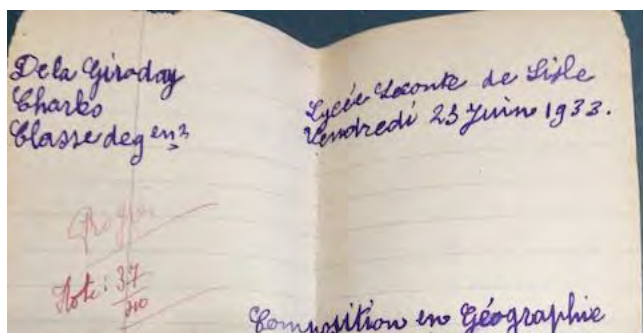 De la Giroday
Charles
Classe de
Lycée Leconte de Lisle
Vendredi 23 Juin 1933.
Note: 37
Composition en Géographie